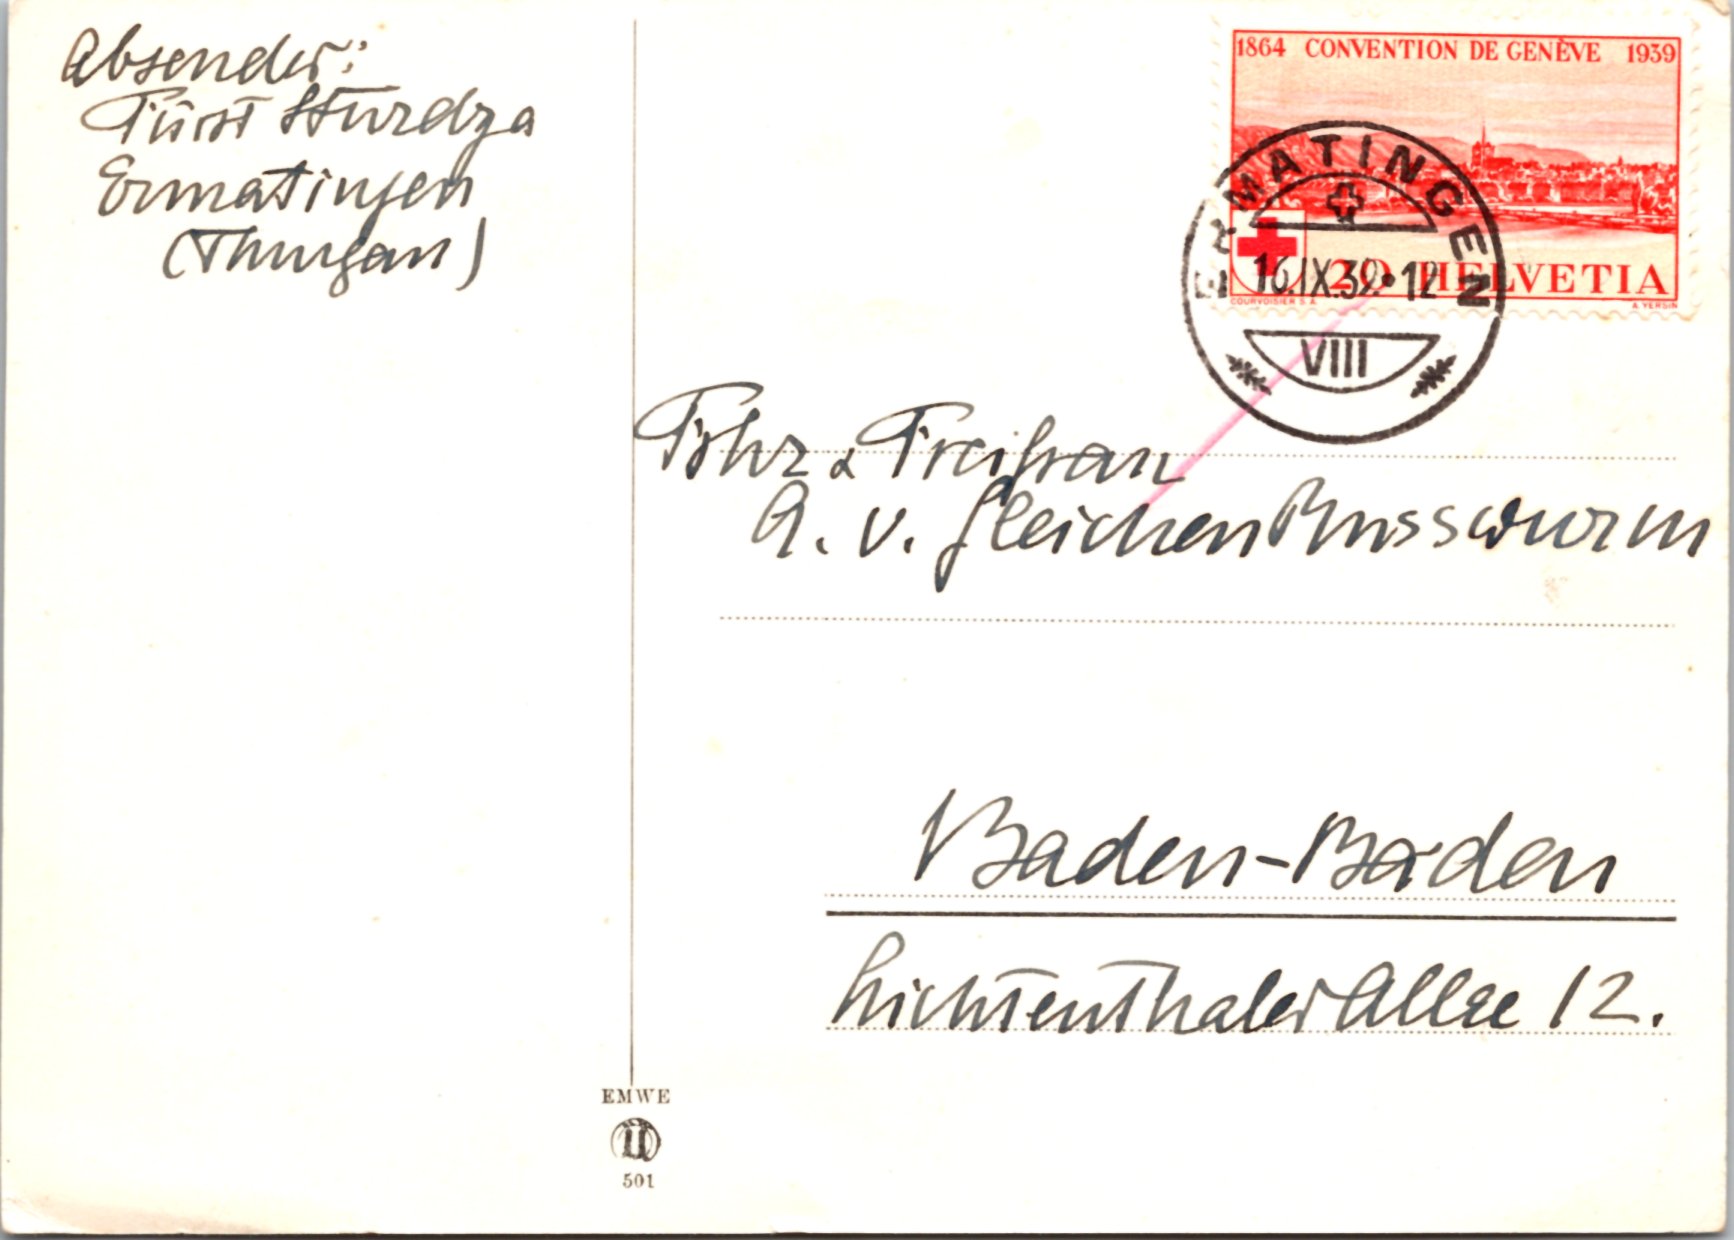 Absender:
Fürst Sturdza
Ermatingen
(Thurgau)
1864 CONVENTION DE GENÈVE 1939
20 HELVETIA
COURVOISIER S.A. A. YERSIN
ERMATINGEN
16.IX.39.-12
VIII
Frhr & Freifrau
A. v. Gleichen Russwurm
Baden-Baden
Lichtenthaler Allee 12.
EMWE
Ü
501